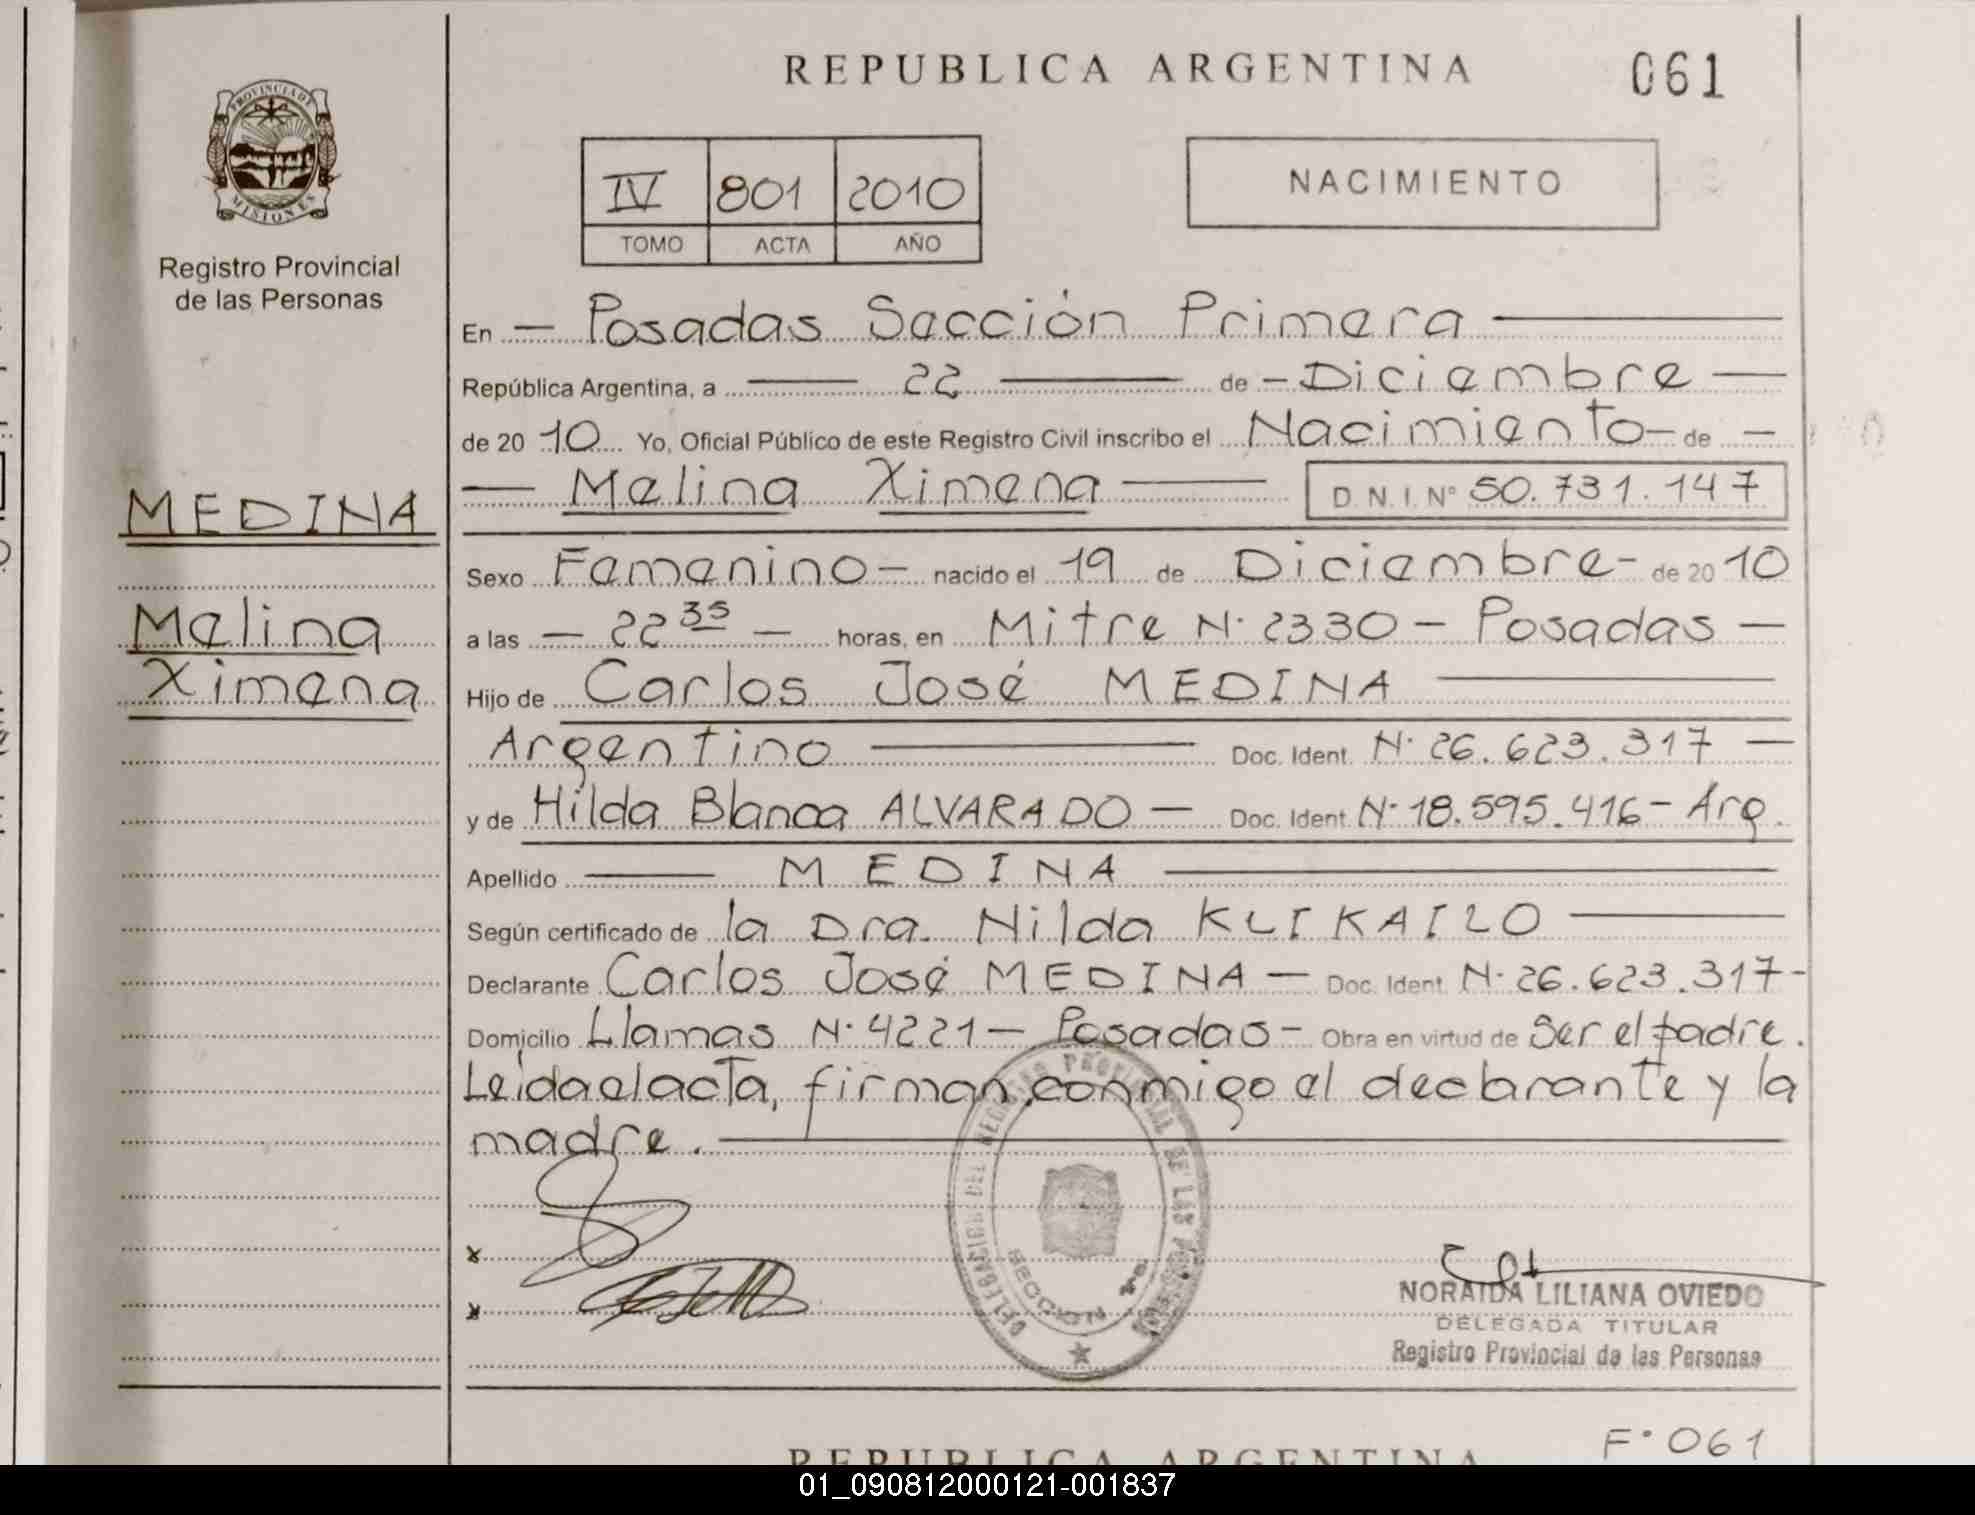 REPUBLICA ARGENTINA 061
PROVINCIA DE
MISIONES
Registro Provincial
de las Personas
IV 801 2010
TOMO ACTA AÑO
NACIMIENTO
En Posadas Sección Primera
República Argentina, a 22 de Diciembre
de 2010 Yo, Oficial Público de este Registro Civil inscribo el Nacimiento de
Melina Ximena D.N.I. N° 50.731.147
MEDINA
Melina
Ximena
Sexo Femenino nacido el 19 de Diciembre de 2010
a las 22 35 horas, en Mitre N° 2330 - Posadas
Hijo de Carlos José MEDINA
Argentino Doc. Ident. N° 26.623.317
y de Hilda Blanca ALVARADO Doc. Ident. N° 18.595.416 - Arg.
Apellido MEDINA
Según certificado de la Dra. Nilda KLIKAILO
Declarante Carlos José MEDINA Doc. Ident. N° 26.623.317
Domicilio Llamas N° 4221 - Posadas - Obra en virtud de Ser el padre.
Leida el acta, firman conmigo el declarante y la
madre.
DELEGACION DEL REGISTRO PROVINCIAL DE LAS PERSONAS
SECCION 1ra.
NORAIDA LILIANA OVIEDO
DELEGADA TITULAR
Registro Provincial de las Personas
F° 061
REPUBLICA ARGENTINA
01_090812000121-001837